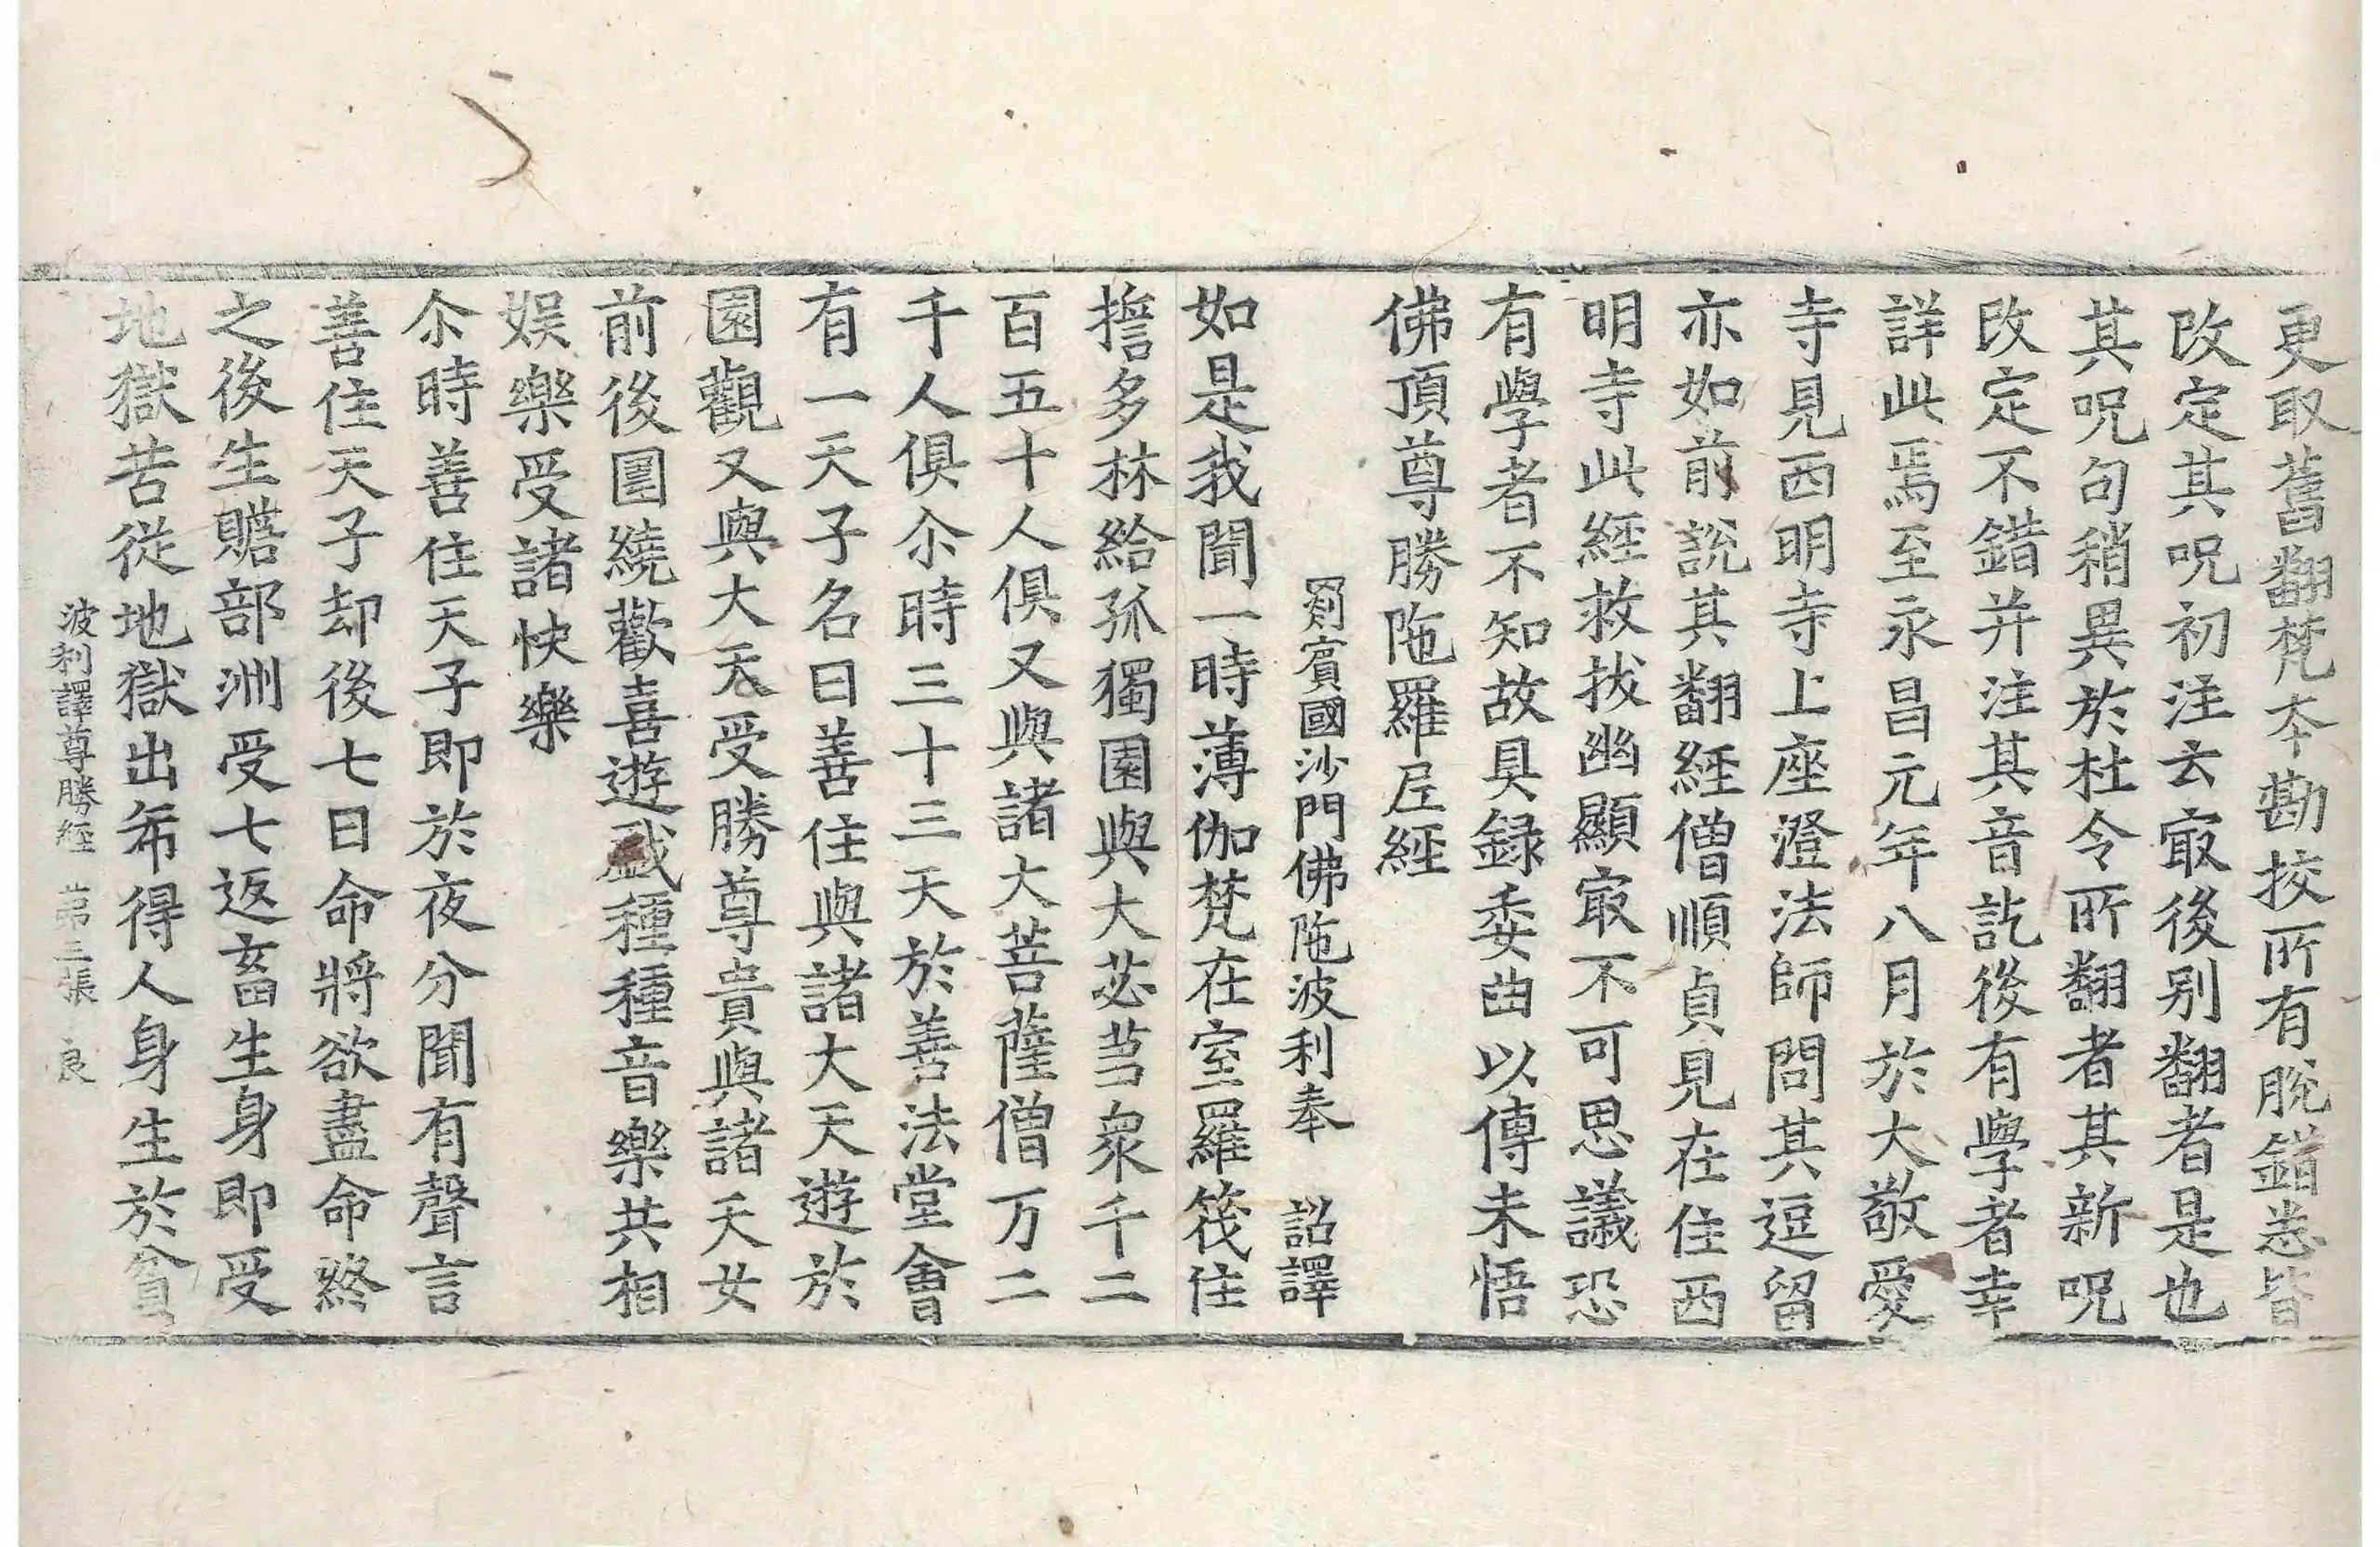 更取舊翻梵夲勘挍所有脫錯悉皆
改定其呪初注云㝡後别翻者是也
其呪句稍異於杜令所翻者其新呪
改定不錯并注其音訖後有學者幸
詳此焉至永昌元年八月於大敬愛
寺見西明寺上座澄法師問其逗留
亦如前說其翻經僧順貞見在住西
明寺此經救拔幽顯㝡不可思議恐
有學者不知故具録委曲以傳未悟
佛頂尊勝陁羅𡰱經
罽賓國沙門佛陁波利奉 詔譯
如是我聞一時薄伽梵在室羅筏住
擔多林給孤獨園與大苾芻衆千二
百五十人俱又與諸大菩薩僧万二
千人俱尒時三十三天於善法堂會
有一天子名曰善住與諸大天遊於
園觀又與大天受勝尊貴與諸天女
前後圍繞歡喜遊戲種種音樂共相
娛樂受諸快樂
尒時善住天子即於夜分聞有聲言
善住天子却後七日命將欲盡命終
之後生贍部洲受七返畜生身即受
地獄苦從地獄出希得人身生於貧
波利譯尊勝經 苐三張 良